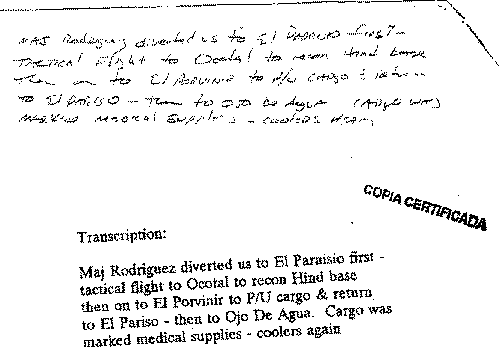 MAJ Rodriguez diverted us to El PARAISO first -
TACTICAL Flight to Ocotal to recon Hind base
Then on to El PORVINIR to P/U CARGO & return
TO El PARISO - Then to OJO De Agua CARGO WAS
MARKED MEDICAL SUPPLIES - COOLERS AGAIN
COPIA CERTIFICADA
Transcription:
Maj Rodriguez diverted us to El Paraisio first -
tactical flight to Ocotal to recon Hind base
then on to El Porvinir to P/U cargo & return
to El Pariso - then to Ojo De Agua. Cargo was
marked medical supplies - coolers again